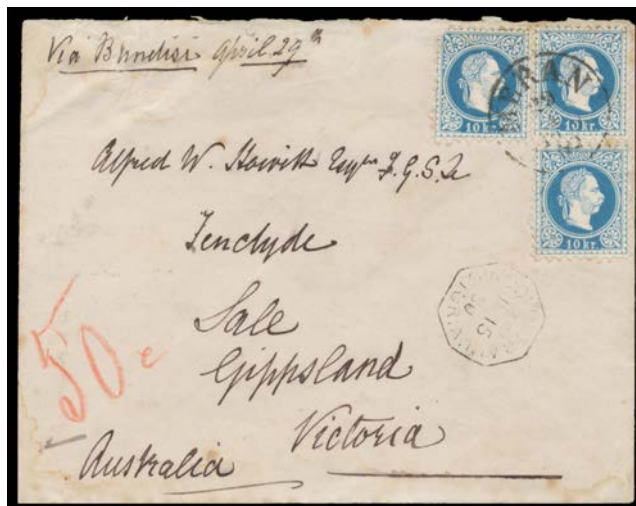 Via Brindisi April 29th
10 kr.
10 kr.
10 kr.
MERAN
Alfred W. Howitt Esqre F.G.S. &
Sale
Gippsland
Victoria
Australia
50 c
15